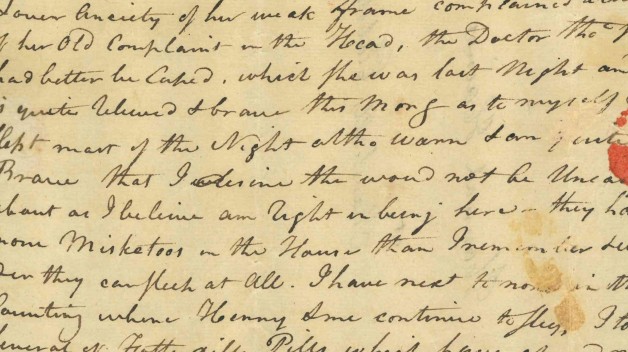 Lower Anciety of her weak frame complained a
of her Old Complaint in the Head, the Doctor tho't
had better be Cuped. which she was last Night an
is quite relieved & brave this Morng as to myself
slept most of the Night altho warm I am quite
Brave that I desire the would not be
about as I believe am right in being here - they ha
more Misketoos in the House than I remember
they can fleck at All. I have next to none in th
where Henny & me continue to sleep, I to
Several of Pills which have